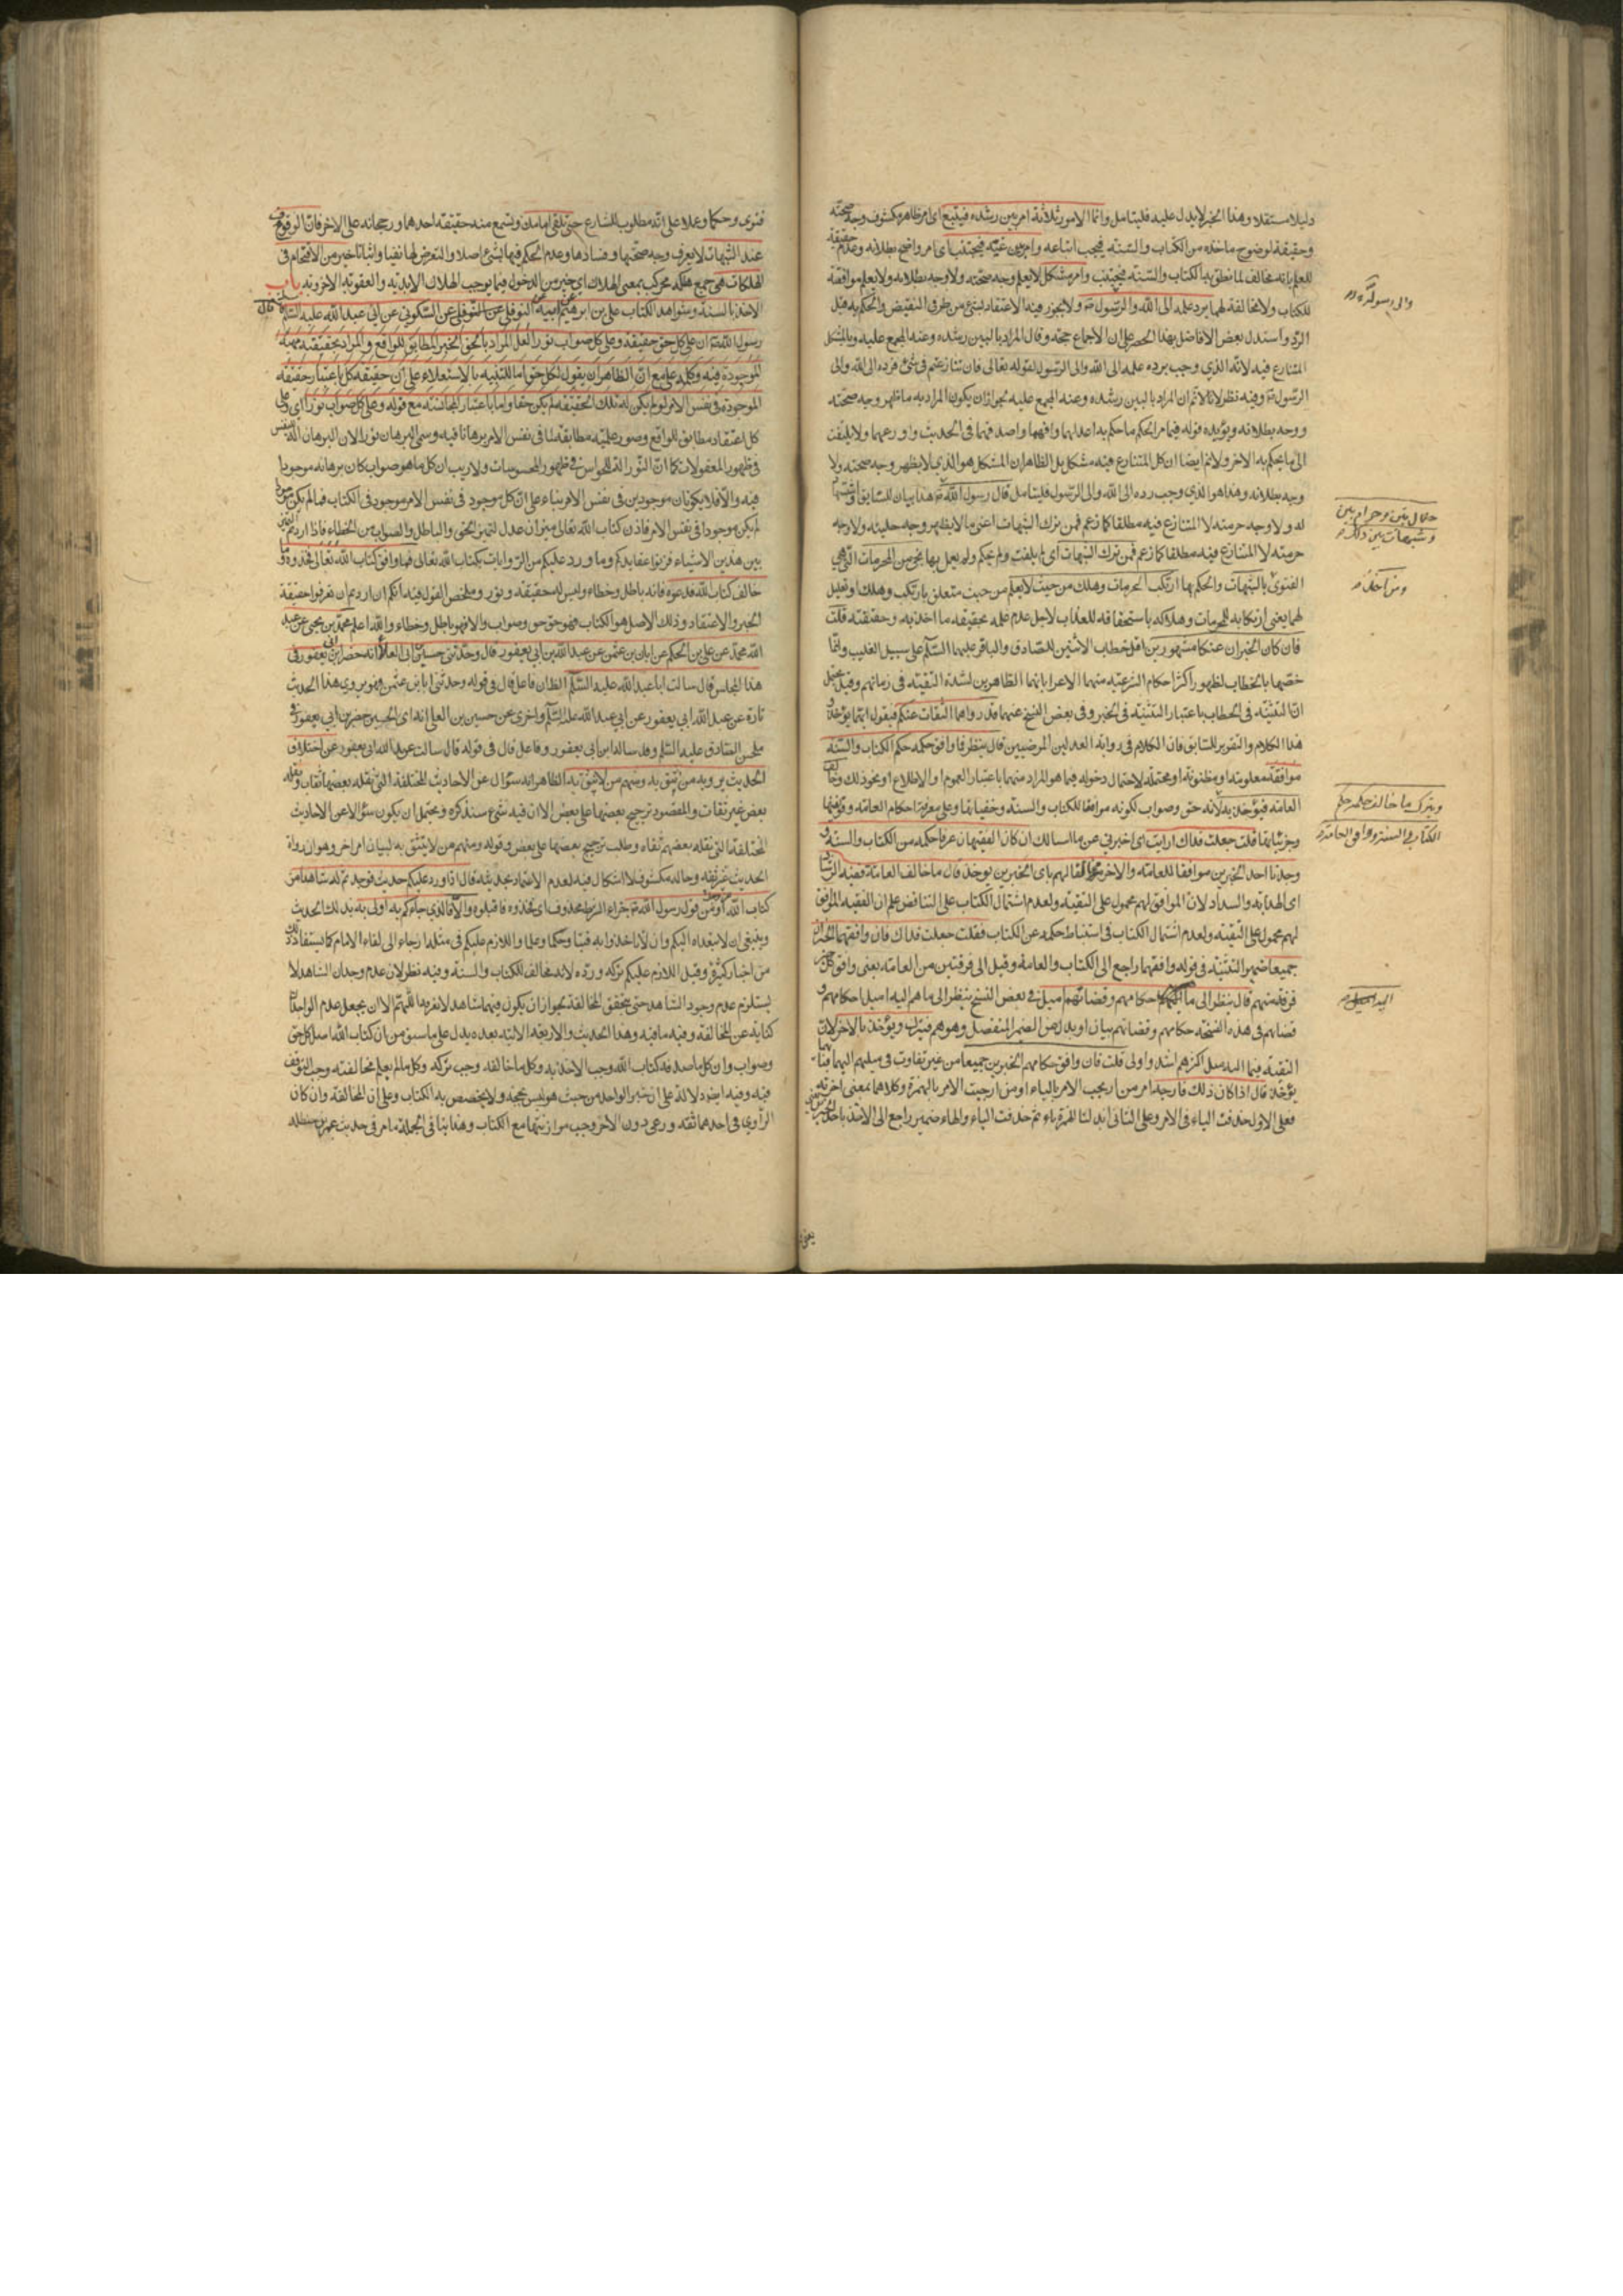 دليلا مستقلا وهذا الخبر لا يدل عليه فليتامل وانما الامور ثلاثة امر بين رشده فيتبع اى امر ظاهر مكشوف وجه صحته
وحقيقة لوضوح ماخذه من الكتاب والسنة فيجب اتباعه وامر بين غيه فيجتنب اى امر واضح بطلانه وعدم حقيقة
للعلم بانه مخالف لما نطق به الكتاب والسنة فيجتنب وامر مشكل لا يعلم وجه صحته ولا وجه بطلانه ولا يعلم موافقة
للكتاب ولا مخالفة لهما يرد علمه الى الله والرسول ولا يجوز فيه الاعتقاد بشئ من طرفى النقيض والحكم به قبل
الرد واستدل بعض الافاضل بهذا الحصر على ان الاجماع حجة وقال المراد بالبين رشده وغيه المجمع عليه وبالمشكل
المتنازع فيه لانه الذى وجب رده علمه الى الله والى الرسول لقوله تعالى فان تنازعتم فى شئ فردوه الى الله والى
الرسول وفيه نظر لانا لا نم ان المراد بالبين رشده وغيه المجمع عليه لجواز ان يكون المراد به ما ظهر وجه صحته
ووجه بطلانه ويؤيده قوله فيما مر الحكم ما حكم به اعدلهما وافقههما واصدقهما فى الحديث واورعهما ولا يلتفت
الى ما يحكم به الاخر ولا نم ايضا ان كل المتنازع فيه مشكل بل الظاهر ان المشكل هو الذى لا يظهر وجه صحته ولا
وجه بطلانه وهذا هو الذى وجب رده الى الله والى الرسول فليتامل قال رسول الله هذا بيان للسابق
له ولا وجه حرمته لا المتنازع فيه مطلقا كما زعم فمن ترك الشبهات اعنى ما لا يظهر وجه حليته ولا وجه
حرمته لا المتنازع فيه مطلقا كما زعم فمن ترك الشبهات اى لم يلتفت ولم يحكم ولم يعمل بها نجى من المحرمات التى هى
الفتوى بالشبهات والحكم بها ارتكب المحرمات وهلك من حيث لا يعلم من حيث متعلق بارتكب وهلك او تعليل
لهما يعنى ارتكابه للمحرمات وهلاكه باستحقاقه للعذاب لاجل عدم علمه بحقيقة ما اخذ به وحقيقته قلت
فان كان الخبران عنكما مشهورين اقول خطاب الاثنين للصادق والباقر عليهما السلم على سبيل التغليب وانما
خصهما بالخطاب لظهور اكثر احكام الشرعية منهما
ان التثنية فى الخطاب باعتبار التثنية فى الخبر وفى بعض النسخ عنهما قد رواهما الثقات عنكم فيقول
هذا الكلام والتقرير للسابق فان الكلام فى رواية العدلين المرضيين قال ينظر فما وافق حكمه حكم الكتاب والسنة
موافقة معلومة او مظنونة او محتملة لاحتمال دخوله فيما هو المراد منهما باعتبار العموم او الاطلاق او نحو ذلك وخالف
العامة فيؤخذ به لانه حق وصواب لكونه موافقا للكتاب والسنة
قلت جعلت فداك ارايت اى اخبرنى عن ما اسالك ان كان الفقيهان عرفا حكمه من الكتاب والسنة و
وجدنا احد الخبرين موافقا للعامة والاخر مخالفا لهم باى الخبرين يوخذ قال ما خالف العامة ففيه الرشاد
اى الهداية والسداد لان الموافق لهم محمول على التقية ولعدم اشتمال الكتاب على التناقض علم ان الفقيه الموافق
لهم محمول على التقية ولعدم اشتمال الكتاب فى استنباط حكمه عن الكتاب فقلت جعلت فداك فان وافقهما الخبران
جميعا ضمير التثنية فى قوله وافقهما راجع الى الكتاب والعامة وقيل الى فرقتين من العامة يعنى وافق كل خبر
فرقة منهم قال ينظر الى ما حكامهم وقضاتهم اميل فى بعض النسخ ينظر الى ما هم اليه اميل حكامهم و
قضاتهم فى هذه النسخة حكامهم وقضاتهم بيان او بدل من الضمير المنفصل وهو هم فيترك ويؤخذ بالاخر لان
التقية فيما اليه ميل اكثرهم اشد واولى قلت فان وافق حكامهم الخبرين جميعا من غير تفاوت فى ميلهم اليهما
يؤخذ قال اذا كان ذلك فارجه امر من ارجيت الامر بالياء او من ارجئت الامر بالهمزة وكلاهما بمعنى اخرته
فعلى الاول حذفت الياء فى الامر وعلى الثانى ابدلت الهمزة ياء ثم حذفت الياء والهاء ضمير راجع الى الاخذ باحد الخبرين
والى رسوله
حلال بين وحرام بين
وشبهات بين ذلك
ومن اخذ
ويترك ما خالف حكمه حكم
الكتاب والسنة ووافق العامة
يعنى
فتوى وحكما وعملا على انه مطلوب للشارع حتى تلقى امامك وتسمع منه حقيقة احدهما ورجحانه على الاخر فان الوقوف
عند الشبهات لا يعرف وجه صحتها وفسادها وعدم الحكم فيها بشئ اصلا والتعرض لها نفيا واثباتا خير من الاقتحام فى
الهلكات هى جمع هلكة محركة بمعنى الهلاك اى خير من الدخول فيما يوجب الهلاك الابدية والعقوبة الاخروية باب
الاخذ بالسنة وشواهد الكتاب على بن ابرهيم عن ابيه عن النوفلى عن السكونى عن ابى عبد الله عليه السلم قال قال
رسول الله ان على كل حق حقيقة وعلى كل صواب نورا لعل المراد بالحق الخبر المطابق للواقع والمراد بحقيقته مهيته
الموجودة فيه وكلمة على مع ان الظاهر ان يقول لكل حق اما للتنبيه بالاستعلاء على ان حقيقة كل باعتبار حقيقة
الموجودة فى نفس الامر لو لم يكن له تلك الحقيقة لم يكن حقا واما باعتبار المجانسة مع قوله وعلى كل صواب نورا اى على
كل اعتقاد مطابق للواقع وصور علمية مطابقة لما فى نفس الامر برهانا فيه وسمى البرهان نورا لان البرهان الة للنفس
فى ظهور المعقولات كما ان النور الة للحواس فى ظهور المحسوسات ولا ريب ان كل ما هو صواب كان برهانه موجودا
فيه والا فلا يكونان موجودين فى نفس الامر بناء على ان كل موجود فى نفس الامر موجود فى الكتاب فما لم يكن موجودا فيه
لم يكن موجودا فى نفس الامر فاذن كتاب الله تعالى ميزان عدل لتميز الحق والباطل والصواب من الخطاء فاذا اردتم التميز
بين هذين الاشياء فزنوا عقايدكم وما ورد عليكم من الروايات بكتاب الله تعالى فما وافق كتاب الله تعالى فخذوه وما
خالف كتاب الله فدعوه فانه باطل وخطاء وليس له حقيقة ونور وملخص القول فيه انكم ان اردتم ان تعرفوا حقيقة
الخبر والاعتقاد وذلك الاصل هو الكتاب فهو حق وصواب والا فهو باطل وخطاء والله اعلم محمد بن يحيى عن عبد
الله محمد عن على بن الحكم عن ابان بن عثمن عن عبد الله بن ابى يعفور قال وحدثنى حسين بن ابى العلا انه حضر ابن ابى يعفور فى
هذا المجلس قال سالت ابا عبد الله عليه السلم الظان فاعل قال فى قوله وحدثنى ابان بن عثمن فهو يروى هذا الحديث
تارة عن عبد الله ابى يعفور عن ابى عبد الله عليه السلم واخرى عن حسين بن العلا انه اى الحسين حضر ابن ابى يعفور فى
مجلس الصادق عليه السلم وقد ساله ابن ابى يعفور وفاعل قال فى قوله قال سالت عبد الله ابى يعفور عن اختلاف
الحديث يرويه من نثق به ومنهم من لا نثق به الظاهر انه سؤال عن الاحاديث المختلفة التى نقله بعضها ثقات ونقله
بعض غير ثقات والمقصود ترجيح بعضها على بعض الا ان فيه شئ سنذكره ويحتمل ان يكون سؤالا عن الاحاديث
المختلفة التى نقله بعضهم ثقاة وطلب ترجيح بعضها على بعض وقوله ومنهم من لا نثق به لبيان امر اخر وهو ان رواة
الحديث غير ثقة وحاله مكشوف لا اشكال فيه لعدم الاعتماد بحديثه قال اذا ورد عليكم حديث فوجدتم له شاهدا من
كتاب الله او من قول رسول الله جزاء الشرط محذوف اى فخذوه فاقبلوه والا فالذى جاءكم به اولى به بذلك الحديث
وينبغى ان لا يتعداه اليكم وان لا تاخذوا به فتيا وحكما وعملا واللازم عليكم فى مثله ارجاء الى لقاء الامام كما يستفاد ذلك
من اخبار كثيرة وقيل اللازم عليكم تركه ورده لانه مخالف للكتاب والسنة وفيه نظر لان عدم وجدان الشاهد لا
يستلزم عدم وجود الشاهد حتى يتحقق المخالفة لجواز ان يكون فيهما شاهد لا نعرفه اللهم الا ان يجعل عدم الوجدان
كناية عن المخالفة وفيه ما فيه وهذا الحديث والاربعة الاتية بعده يدل على ما سبق من ان كتاب الله اصل كل حق
وصواب وان كل ما صدقه كتاب الله وجب الاخذ به وكل ما خالفه وجب تركه وكل ما لم يعلم مخالفته وجب التوقف
فيه وفيه ايضا دلالة على ان خبر الواحد من حيث هو ليس بحجة ولا يخصص به الكتاب وعلى ان المخالفة وان كان
الراوى فى احدهما ثقة ورعى دون الاخر وجب موازنتها مع الكتاب وهذا ينافى فى الجملة ما مر فى حديث عمر بن حنظلة